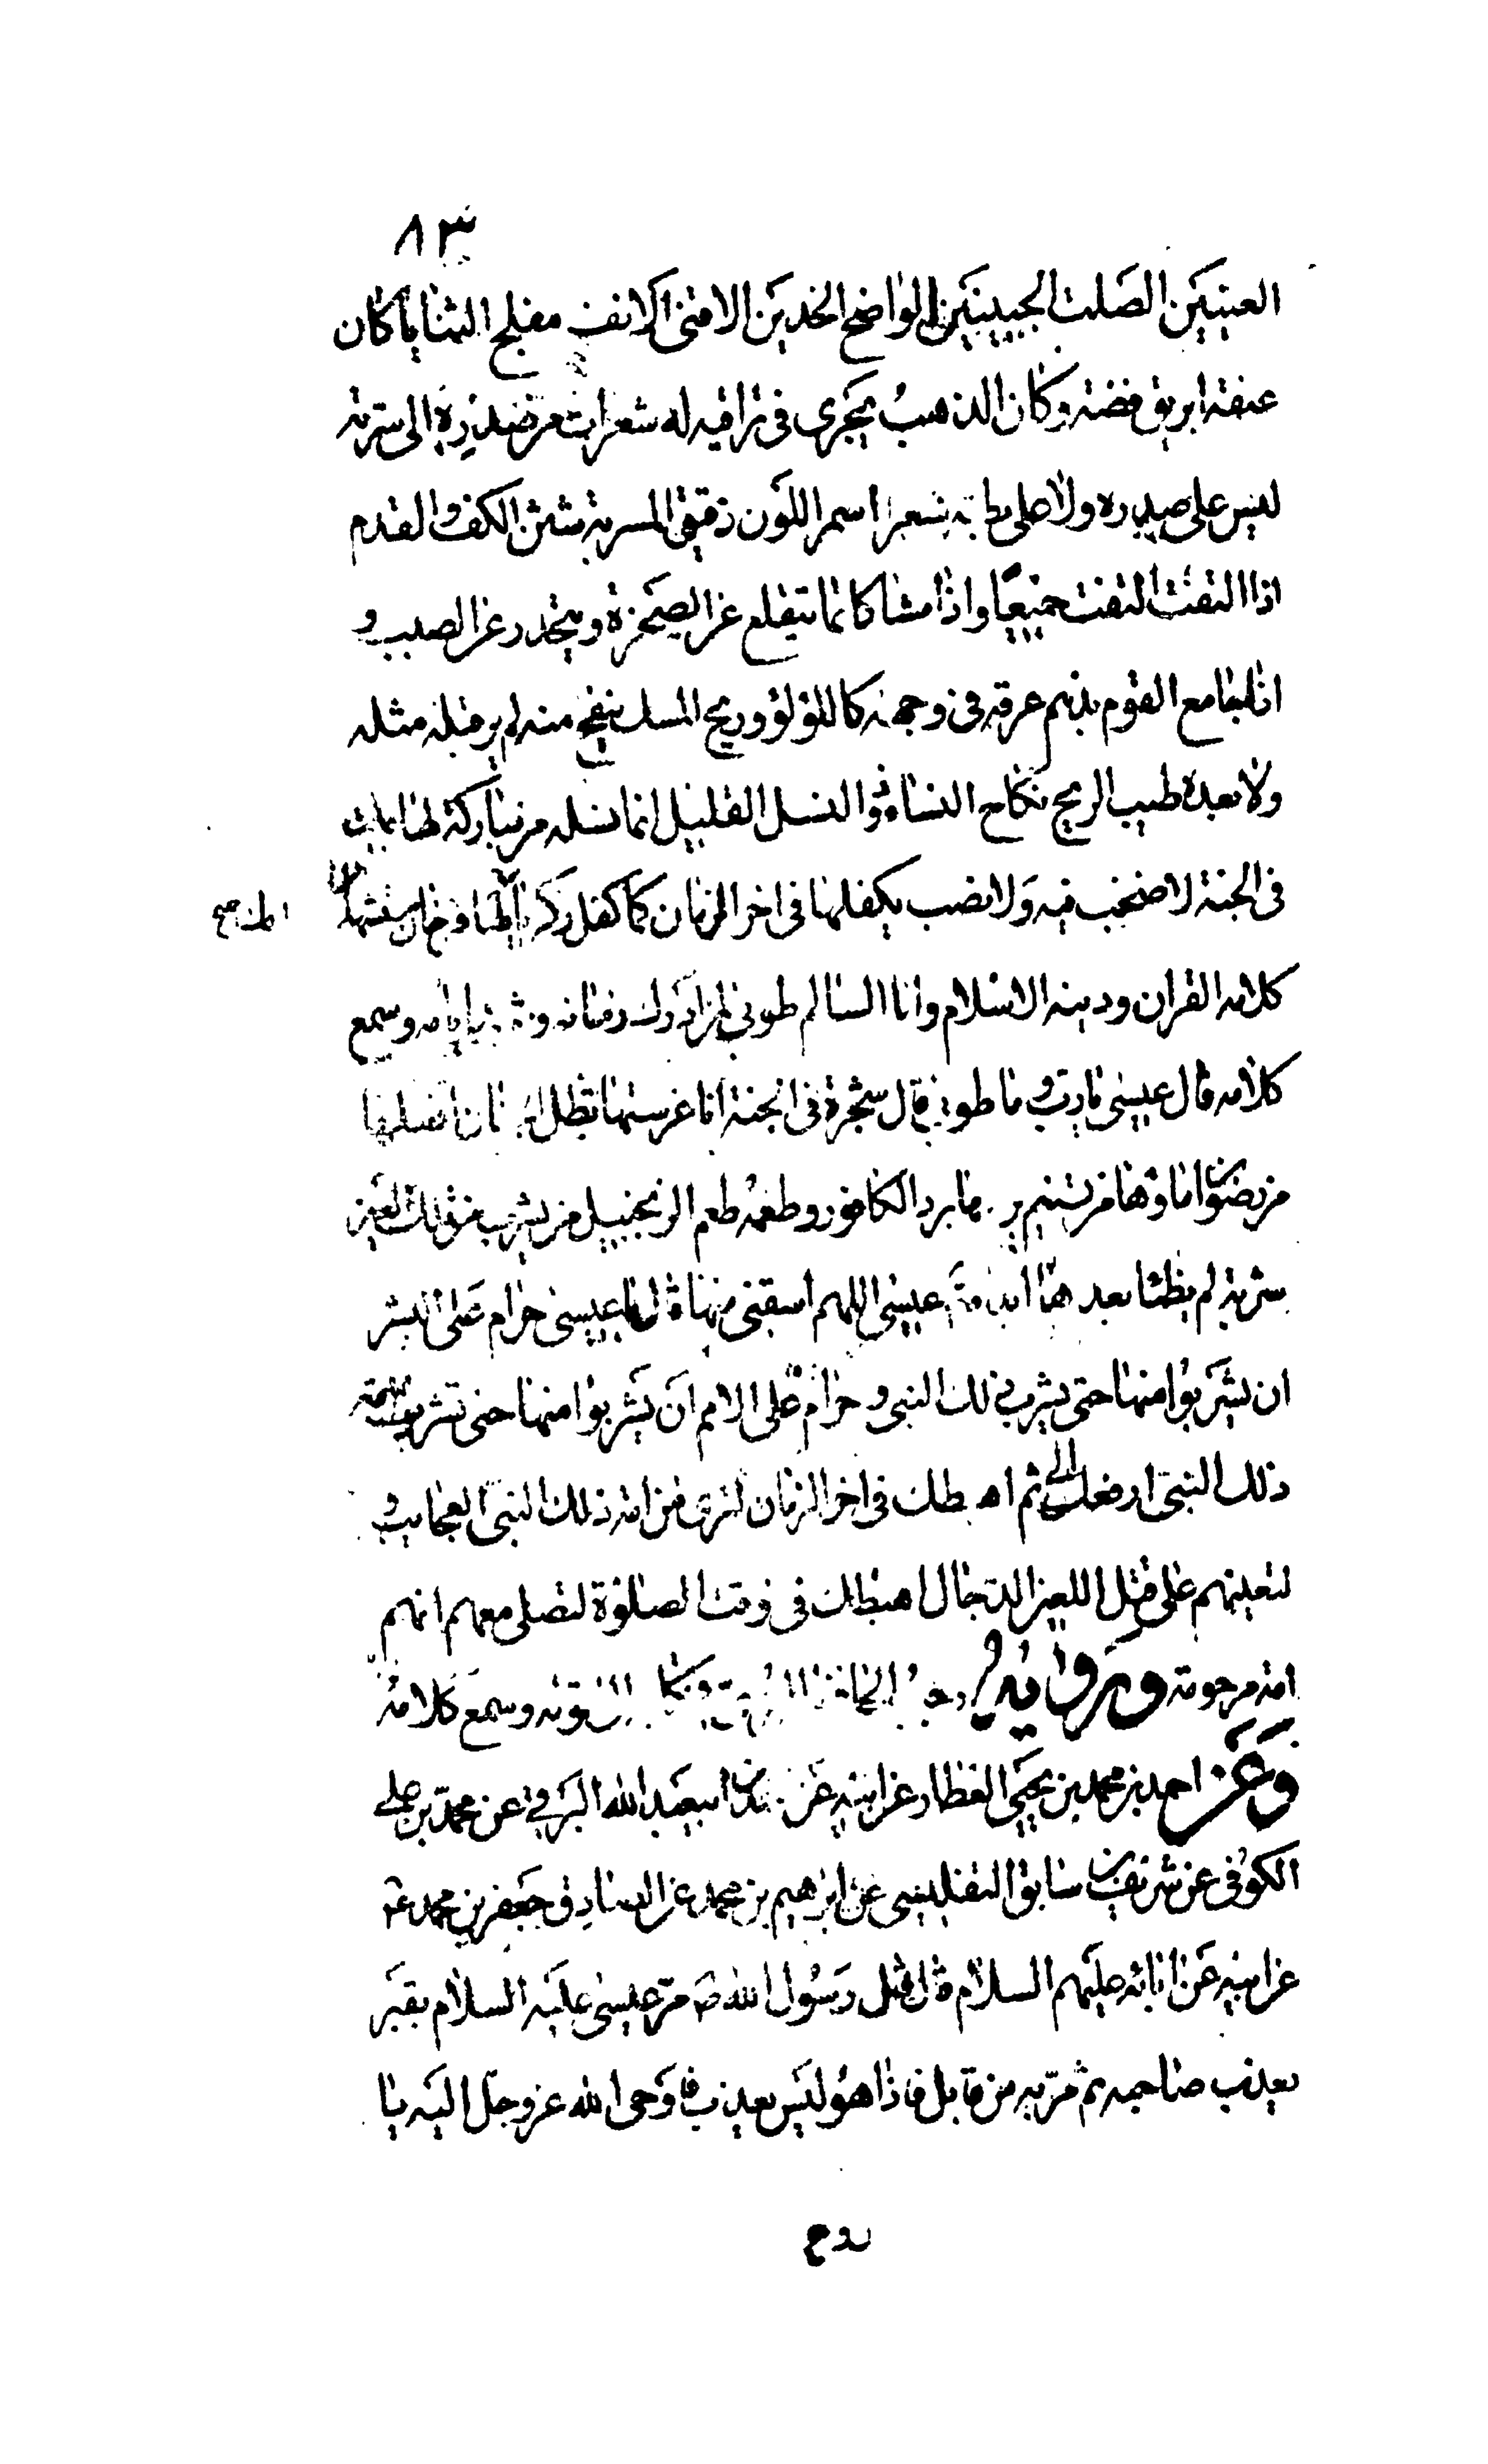 ٨٣
العينين الصلت الجبينين الواضح الخدين الاقنى الانف مفلج الثنايا كان
عنقه ابريق فضة وكان الذهب يجرى فى تراقيه له شعرات من صدره الى سرته
ليس على صدره ولا على بطنه شعر اسمر اللون دقيق المسربة شثن الكف والقدم
اذا التفت التفت جميعا واذا مشا كانما يتقلع عن الصخرة وينحدر عن الصبب و
اذا جامع القوم بذهم عرقه فى وجهه كاللؤلؤ وريح المسك ينفح منه لم ير قبله مثله
ولا بعده طيب الريح نكاح النساء ذو النسل القليل انما نسله من مباركة لها بيت
فى الجنة لا صخب فيه ولا نصب يكفلها فى اخر الزمان كما كفل زكريا لها فرخان
امك صح
كلامه القران ودينه الاسلام وانا السالم طوبى لمن ادرك زمانه وشهد ايامه وسمع
كلامه قال عيسى يا رب وما طوبى قال شجرة فى الجنة انا غرستها تظل الجنان اصلها
من رضوان ماؤها من تسنيم برده برد الكافور وطعمه طعم الزنجبيل من يشرب من تلك العين
شربة لم يظمأ بعدها ابدا عيسى اللهم اسقنى منها قال يا عيسى حرام على البشر
ان يشربوا منها حتى يشرب ذلك النبى وحرام على الامم ان يشربوا منها حتى تشرب امة
ذلك النبى ارفعك الى ثم اهبطك فى اخر الزمان لترى من امة ذلك النبى العجايب و
لتعينهم على قتل اللعين الدجال اهبطك فى وقت الصلوة لتصلى معهم انهم
امة مرحومة ورواية وسمع كلامه
وعن احمد بن محمد بن يحيى العطار عن ابيه عن ابيعبد الله البرقى عن محمد بن على
الكوفى عن شريف بن سابق التفليسى عن ابراهيم بن محمد عن الصادق جعفر بن محمد عن
عن ابيه عن ابائه عليهم السلام قال قال رسول الله ص مر عيسى عليه السلام بقبر
يعذب صاحبه ثم مر به من قابل فاذا هو ليس يعذب فاوحى الله عز وجل اليه يا
روح